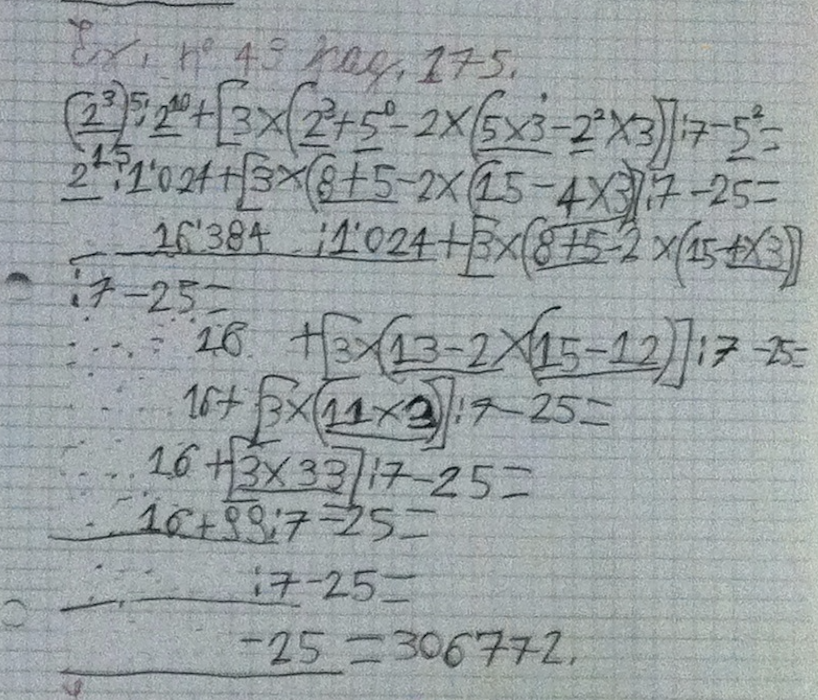 Ex. n° 43 pag. 175.
(2³)⁵:2¹⁰+[3×(2³+5⁰-2×(5×3-2²×3)]:7-5²=
2¹⁵:1'024+[3×(8+5-2×(15-4×3]:7-25=
16'384 :1'024+[3×(8+5-2×(15-4×3)]
:7-25=
16 +[3×(13-2×(15-12)]:7-25=
16+[3×(11×3)]:7-25=
16+[3×33]:7-25=
16+99:7-25=
:7-25=
-25=306772.